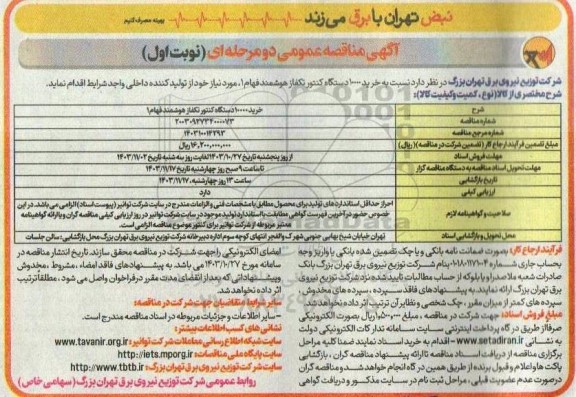 نبض تهران با برق می‌زند
بهینه مصرف کنیم
آگهی مناقصه عمومی دو مرحله‌ای (نوبت اول)
شرکت توزیع نیروی برق تهران بزرگ در نظر دارد نسبت به خرید ۱۰۰۰۰ دستگاه کنتور تکفاز هوشمند فهام۱، مورد نیاز خود از تولید کننده داخلی واجد شرایط اقدام نماید.
شرح مختصری از کالا (نوع، کمیت و کیفیت کالا):
شرح خرید ۱۰۰۰۰ دستگاه کنتور تکفاز هوشمند فهام۱
شماره مناقصه ۲۰۰۳۰۹۲۷۳۴۰۰۰۰۷۳
شماره مرجع مناقصه ۱۴۰۳۱۰۰۱۴۲۹۳
مبلغ تضمین فرآیند ارجاع کار (تضمین شرکت در مناقصه) (ریال) ۱۶,۲۰۰,۰۰۰,۰۰۰ ریال
مهلت فروش اسناد از روز پنجشنبه تاریخ ۱۴۰۳/۱۰/۲۷ لغایت روز سه شنبه تاریخ ۱۴۰۳/۱۱/۰۲
مهلت تحویل اسناد مناقصه به دستگاه مناقصه گزار تا ساعت ۹ صبح روز چهارشنبه تاریخ ۱۴۰۳/۱۱/۱۷
تاریخ بازگشایی ساعت ۱۳ روز چهارشنبه، ۱۴۰۳/۱۱/۱۷
ارزیابی کیفی دارد
صلاحیت و گواهینامه لازم احراز حداقل استانداردهای تولید برای محصول مطابق با مشخصات فنی و الزامات مندرج در سایت شرکت توانیر (پیوست اسناد) الزامی می‌باشد. در این
خصوص حضور در آخرین فهرست گواهی مطابقت با استاندارد تولید موجود در سایت شرکت توانیر در روز ارزیابی کیفی مناقصه گران و یا ارائه گواهینامه
معتبر مربوطه از شرکت توانیر برای کنتور موضوع مناقصه الزامی است.
محل تحویل و بازگشایی اسناد تهران خیابان شیخ بهایی جنوبی شهرک والفجر انتهای کوچه سوم اداره دبیرخانه شرکت توزیع نیروی برق تهران بزرگ محل بازگشایی: سالن جلسات
فرآیند ارجاع کار: بصورت ضمانت نامه بانکی و یا چک تضمین شده بانکی یا واریز وجه
بحساب جاری شماره ۰۱۸۰۱۱۷۱۰۴ بنام شرکت توزیع نیروی برق تهران بزرگ بانک
صادرات شعبه ملاصدرا و یا بلوکه از حساب مطالبات تایید شده نزد شرکت توزیع نیروی
برق تهران بزرگ ارائه نمایند. به پیشنهادهای فاقد سپرده، سپرده های مخدوش،
سپرده های کمتر از میزان مقرر، چک شخصی و نظایر آن ترتیب اثر داده نخواهد شد.
مبلغ فروش اسناد: جهت شرکت در مناقصه، مبلغ ۱,۵۰۰,۰۰۰ ریال بصورت الکترونیکی
صرفا از طریق درگاه پرداخت اینترنتی سایت سامانه تدارکات الکترونیکی دولت
به نشانی www.setadiran.ir - اقدام به خرید اسناد نمایند ضمنا کلیه مراحل
برگزاری مناقصه از دریافت اسناد مناقصه تا ارائه پیشنهاد مناقصه گران، بازگشایی
پاکت ها و اعلام و قبول برنده از طریق همین درگاه انجام خواهد شد و مناقصه گران
در صورت عدم عضویت قبلی، مراحل ثبت نام در سایت مذکور و دریافت گواهی
امضای الکترونیکی را جهت شرکت در مناقصه محقق سازند. تاریخ انتشار مناقصه در
سامانه مورخ ۱۴۰۳/۱۰/۲۷ می باشد. به پیشنهادهای فاقد امضاء، مشروط، مخدوش
و پیشنهاداتی که بعد از انقضای مدت مقرر در فراخوان واصل می شود، مطلقا ترتیب
اثر داده نخواهد شد.
سایر شرایط متقاضیان جهت شرکت در مناقصه:
- سایر اطلاعات و جزئیات مربوطه در اسناد مناقصه مندرج است.
نشانی های کسب اطلاعات بیشتر:
سایت شبکه اطلاع رسانی معاملات شرکت توانیر: www.tavanir.org.ir
سایت پایگاه ملی مناقصات: http://iets.mporg.ir
سایت شرکت توزیع نیروی برق تهران بزرگ: http://www.tbtb.ir
روابط عمومی شرکت توزیع نیروی برق تهران بزرگ (سهامی خاص)